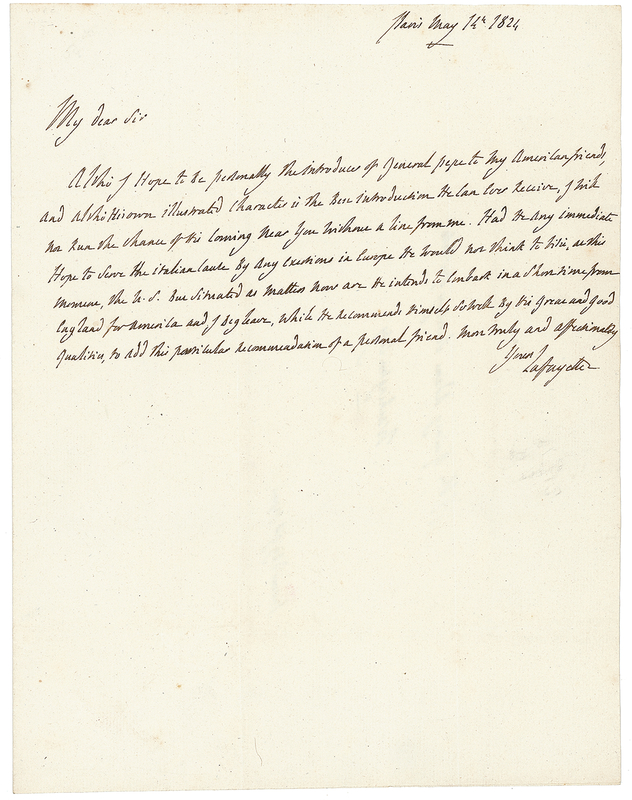 Paris May 14th 1824
My dear Sir
Altho I Hope to Be personally the introducer of General pepe to My American friends,
and altho His own illustrated Character is the Best introduction He Can Ever Receive, I Wish
not Run the Chance of His Coming Near You Without a line from me. Had He Any immediate
Hope to Serve the italian Cause By Any Exertions in Europe He Would not think to Visit, at this
moment, the U. S. But Situated as matters Now are He intends to Embark in a Short time from
England for America and I Beg leave, While He Recommends Himself So Well By His Great and Good
qualities, to add this particular recommendation of a personal friend. Most truly and affectionately
Yours
Lafayette